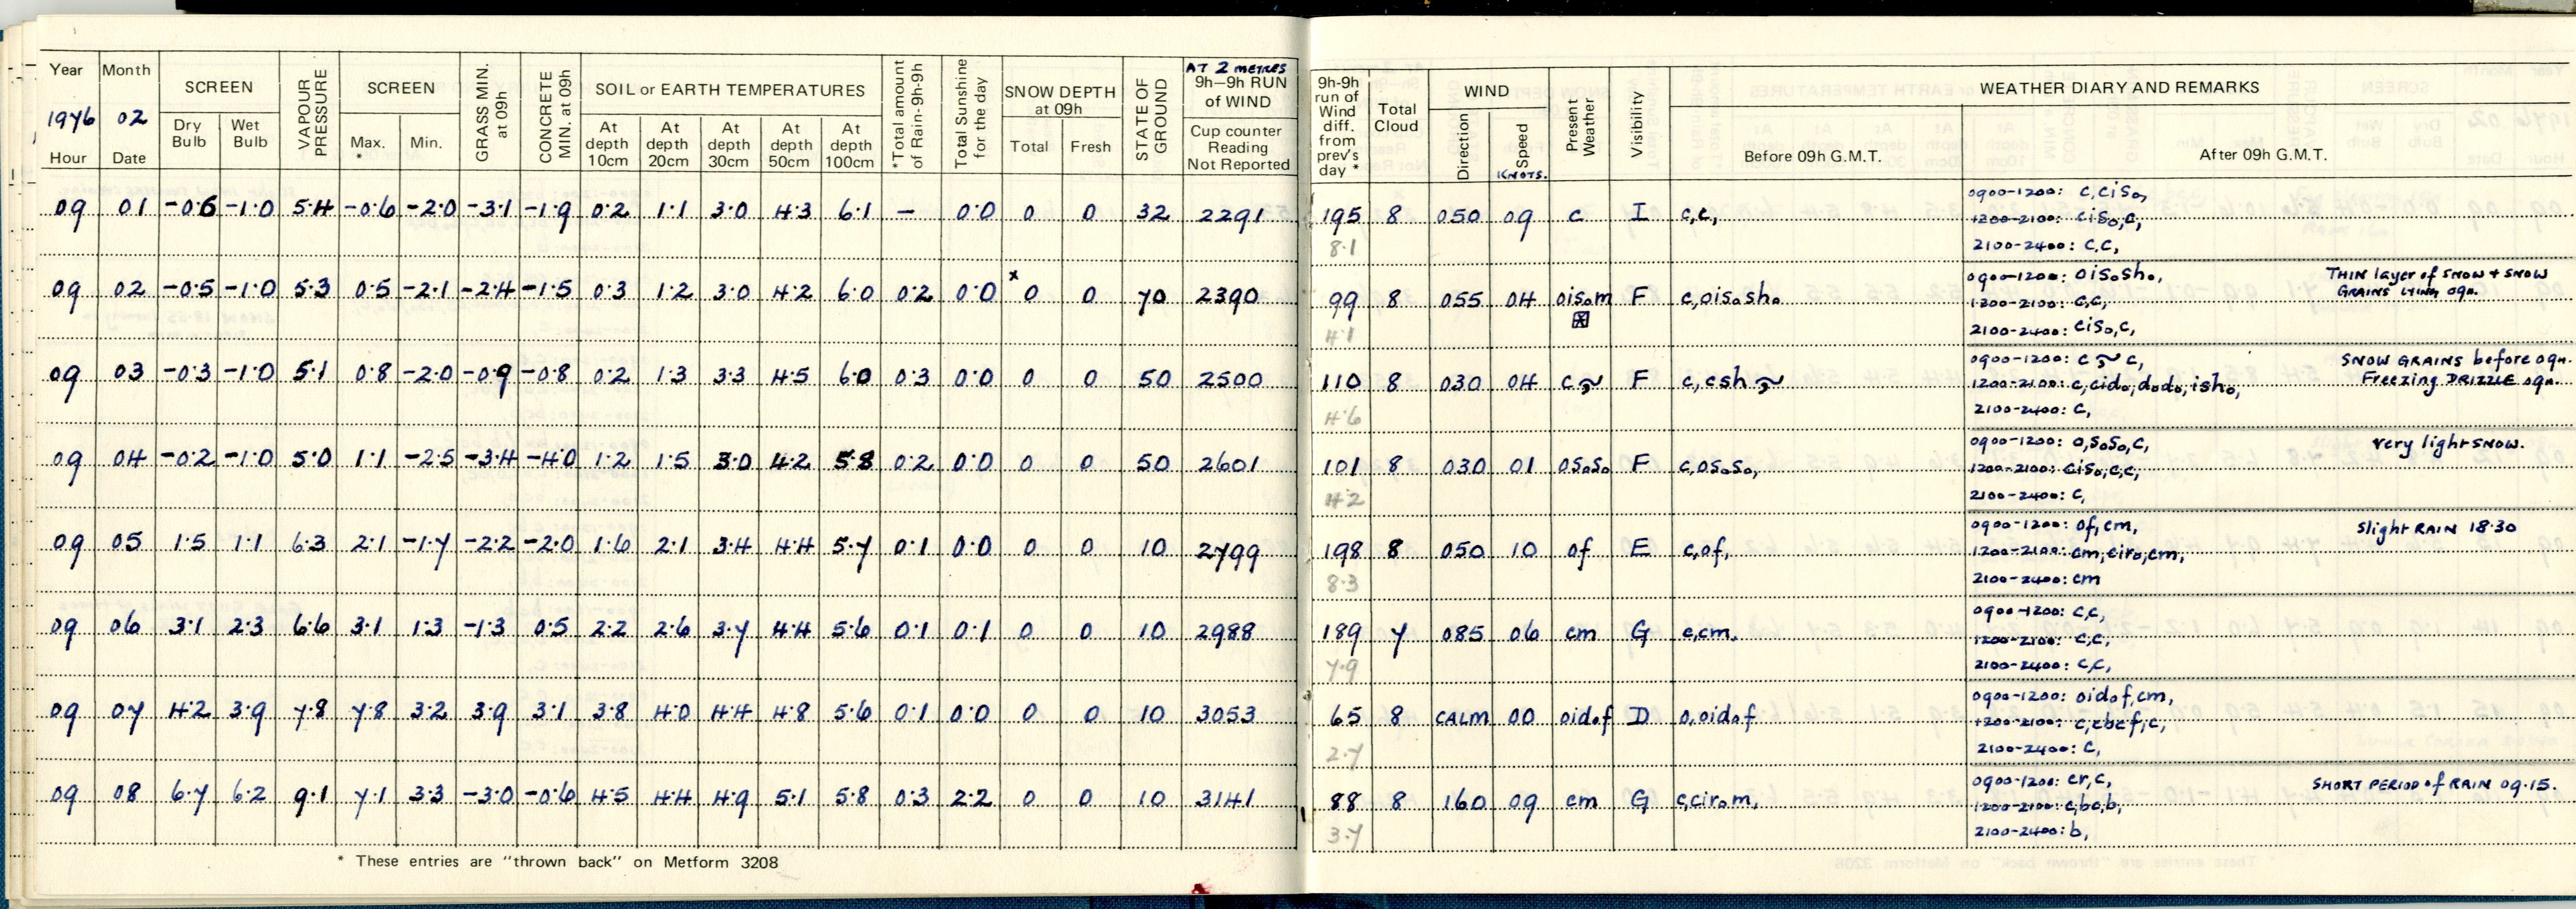 Year Month SCREEN VAPOUR PRESSURE SCREEN GRASS MIN. at 09h CONCRETE MIN. at 09h SOIL or EARTH TEMPERATURES *Total amount of Rain-9h-9h Total Sunshine for the day SNOW DEPTH at 09h STATE OF GROUND AT 2 METRES 9h–9h RUN of WIND
1976 02 Dry Bulb Wet Bulb Max. * Min. At depth 10cm At depth 20cm At depth 30cm At depth 50cm At depth 100cm Total Fresh Cup counter Reading Not Reported
Hour Date
09 01 -0.6 -1.0 5.4 -0.6 -2.0 -3.1 -1.9 0.2 1.1 3.0 4.3 6.1 – 0.0 0 0 32 2291
09 02 -0.5 -1.0 5.3 0.5 -2.1 -2.4 -1.5 0.3 1.2 3.0 4.2 6.0 0.2 0.0 x0 0 70 2390
09 03 -0.3 -1.0 5.1 0.8 -2.0 -0.9 -0.8 0.2 1.3 3.3 4.5 6.0 0.3 0.0 0 0 50 2500
09 04 -0.2 -1.0 5.0 1.1 -2.5 -3.4 -4.0 1.2 1.5 3.0 4.2 5.8 0.2 0.0 0 0 50 2601
09 05 1.5 1.1 6.3 2.1 -1.7 -2.2 -2.0 1.6 2.1 3.4 4.4 5.7 0.1 0.0 0 0 10 2799
09 06 3.1 2.3 6.6 3.1 1.3 -1.3 0.5 2.2 2.6 3.7 4.4 5.6 0.1 0.1 0 0 10 2988
09 07 4.2 3.9 7.8 7.8 3.2 3.9 3.1 3.8 4.0 4.4 4.8 5.6 0.1 0.0 0 0 10 3053
09 08 6.7 6.2 9.1 7.1 3.3 -3.0 -0.6 4.5 4.4 4.9 5.1 5.8 0.3 2.2 0 0 10 3141
* These entries are "thrown back" on Metform 3208
9h-9h run of Wind diff. from prev's day * Total Cloud WIND Present Weather Visibility WEATHER DIARY AND REMARKS
Direction Speed KNOTS. Before 09h G.M.T. After 09h G.M.T.
195 8 050 09 c I c,c, 0900-1200: c,ciso,
1200-2100: ciso,c,
8.1 2100-2400: c,c,
99 8 055 04 oisom F c,oisosho 0900-1200: oisosho, THIN layer of SNOW + SNOW
1200-2100: c,c, GRAINS LYING 09h.
4.1 2100-2400: ciso,c,
110 8 030 04 c F c,csh 0900-1200: c c, SNOW GRAINS before 09h.
1200-2100: c,cido,dodo,isho, Freezing DRIZZLE 09h.
4.6 2100-2400: c,
101 8 030 01 ososo F c,ososo, 0900-1200: o,soso,c, very light SNOW.
1200-2100: ciso,c,c,
4.2 2100-2400: c,
198 8 050 10 of E c,of, 0900-1200: of,cm, Slight RAIN 18.30
1200-2100: cm,ciro,cm,
8.3 2100-2400: cm
189 7 085 06 cm G c,cm. 0900-1200: c,c,
1200-2100: c,c,
7.9 2100-2400: c,c,
65 8 CALM 00 oidof D o,oidof 0900-1200: oidof,cm,
1200-2100: c,cbcf,c,
2.7 2100-2400: c,
88 8 160 09 cm G c,cirom, 0900-1200: cr,c, SHORT PERIOD of RAIN 09.15.
1200-2100: c,bc,b,
3.7 2100-2400: b,